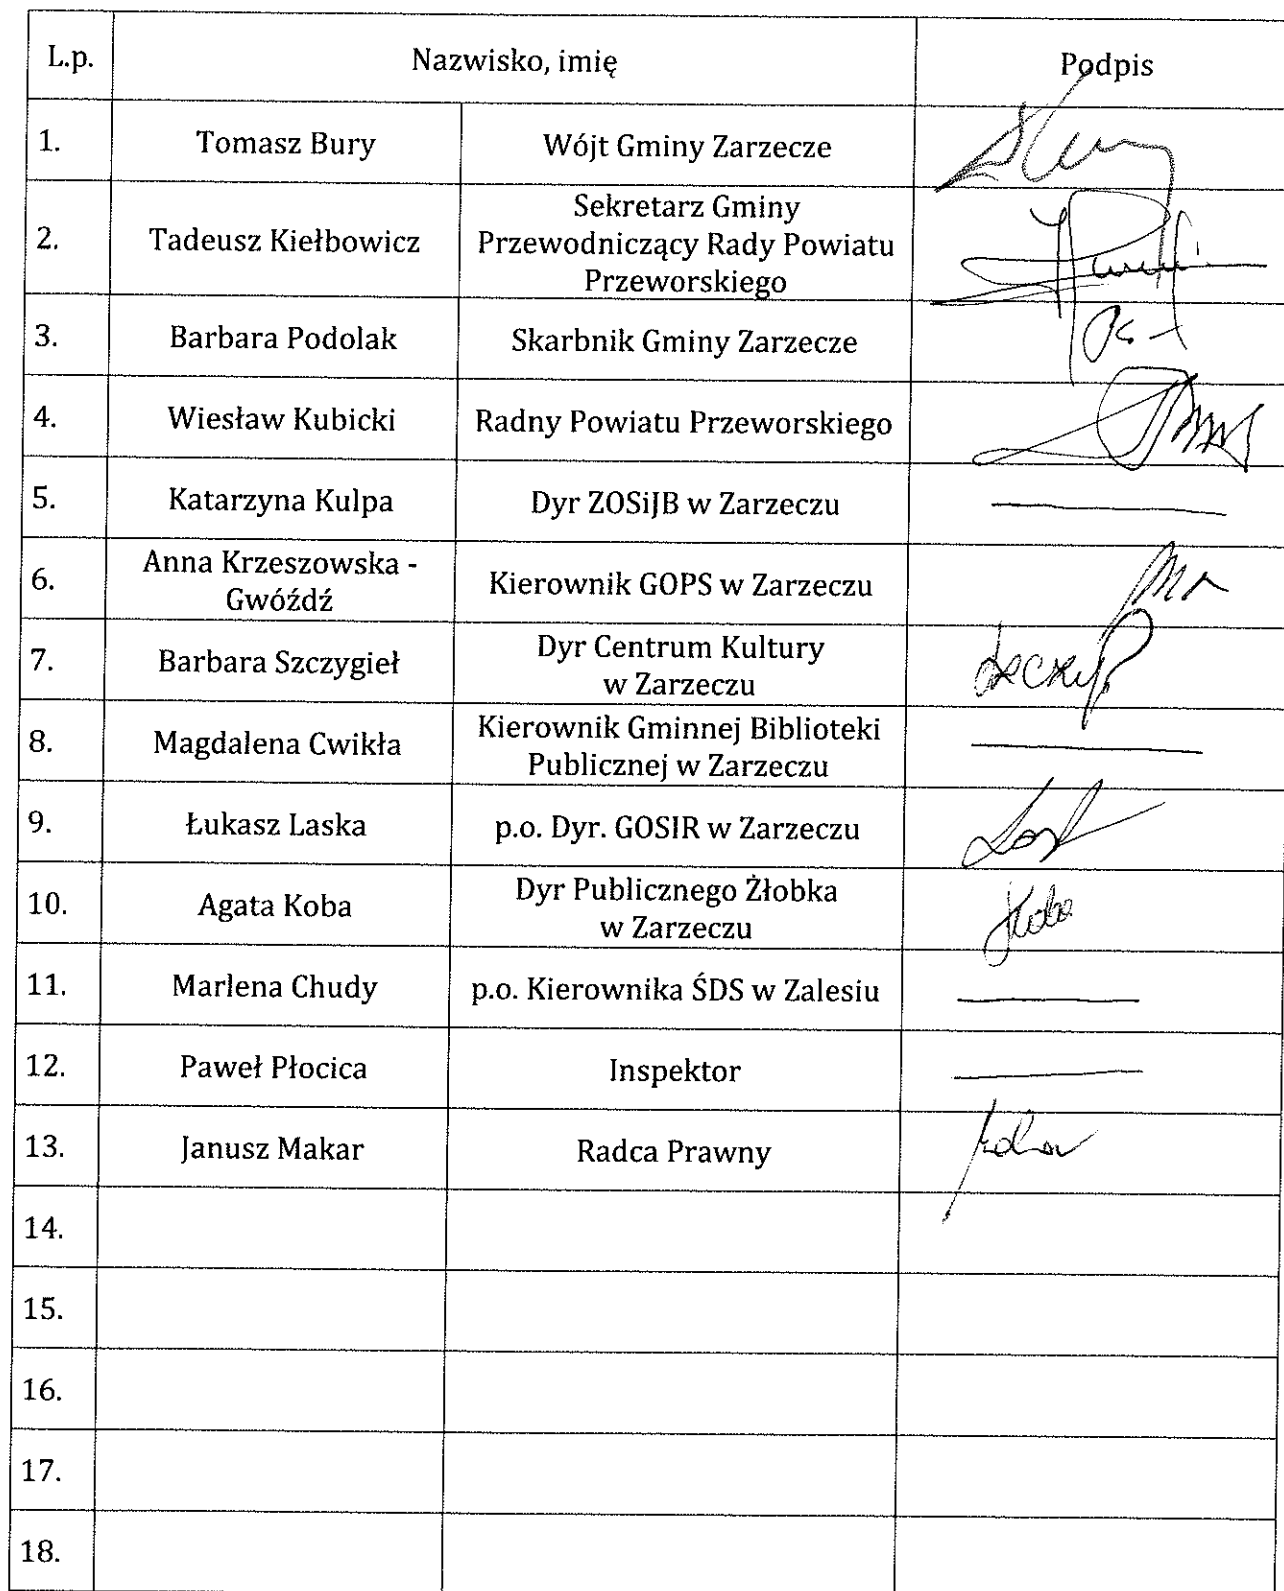 L.p. Nazwisko, imię Podpis
1. Tomasz Bury Wójt Gminy Zarzecze
Sekretarz Gminy
2. Tadeusz Kiełbowicz Przewodniczący Rady Powiatu
Przeworskiego
3. Barbara Podolak Skarbnik Gminy Zarzecze
4. Wiesław Kubicki Radny Powiatu Przeworskiego
5. Katarzyna Kulpa Dyr ZOSiJB w Zarzeczu
6. Anna Krzeszowska - Kierownik GOPS w Zarzeczu
Gwóźdź
7. Barbara Szczygieł Dyr Centrum Kultury
w Zarzeczu
8. Magdalena Cwikła Kierownik Gminnej Biblioteki
Publicznej w Zarzeczu
9. Łukasz Laska p.o. Dyr. GOSIR w Zarzeczu
10. Agata Koba Dyr Publicznego Żłobka
w Zarzeczu
11. Marlena Chudy p.o. Kierownika ŚDS w Zalesiu
12. Paweł Płocica Inspektor
13. Janusz Makar Radca Prawny
14.
15.
16.
17.
18.